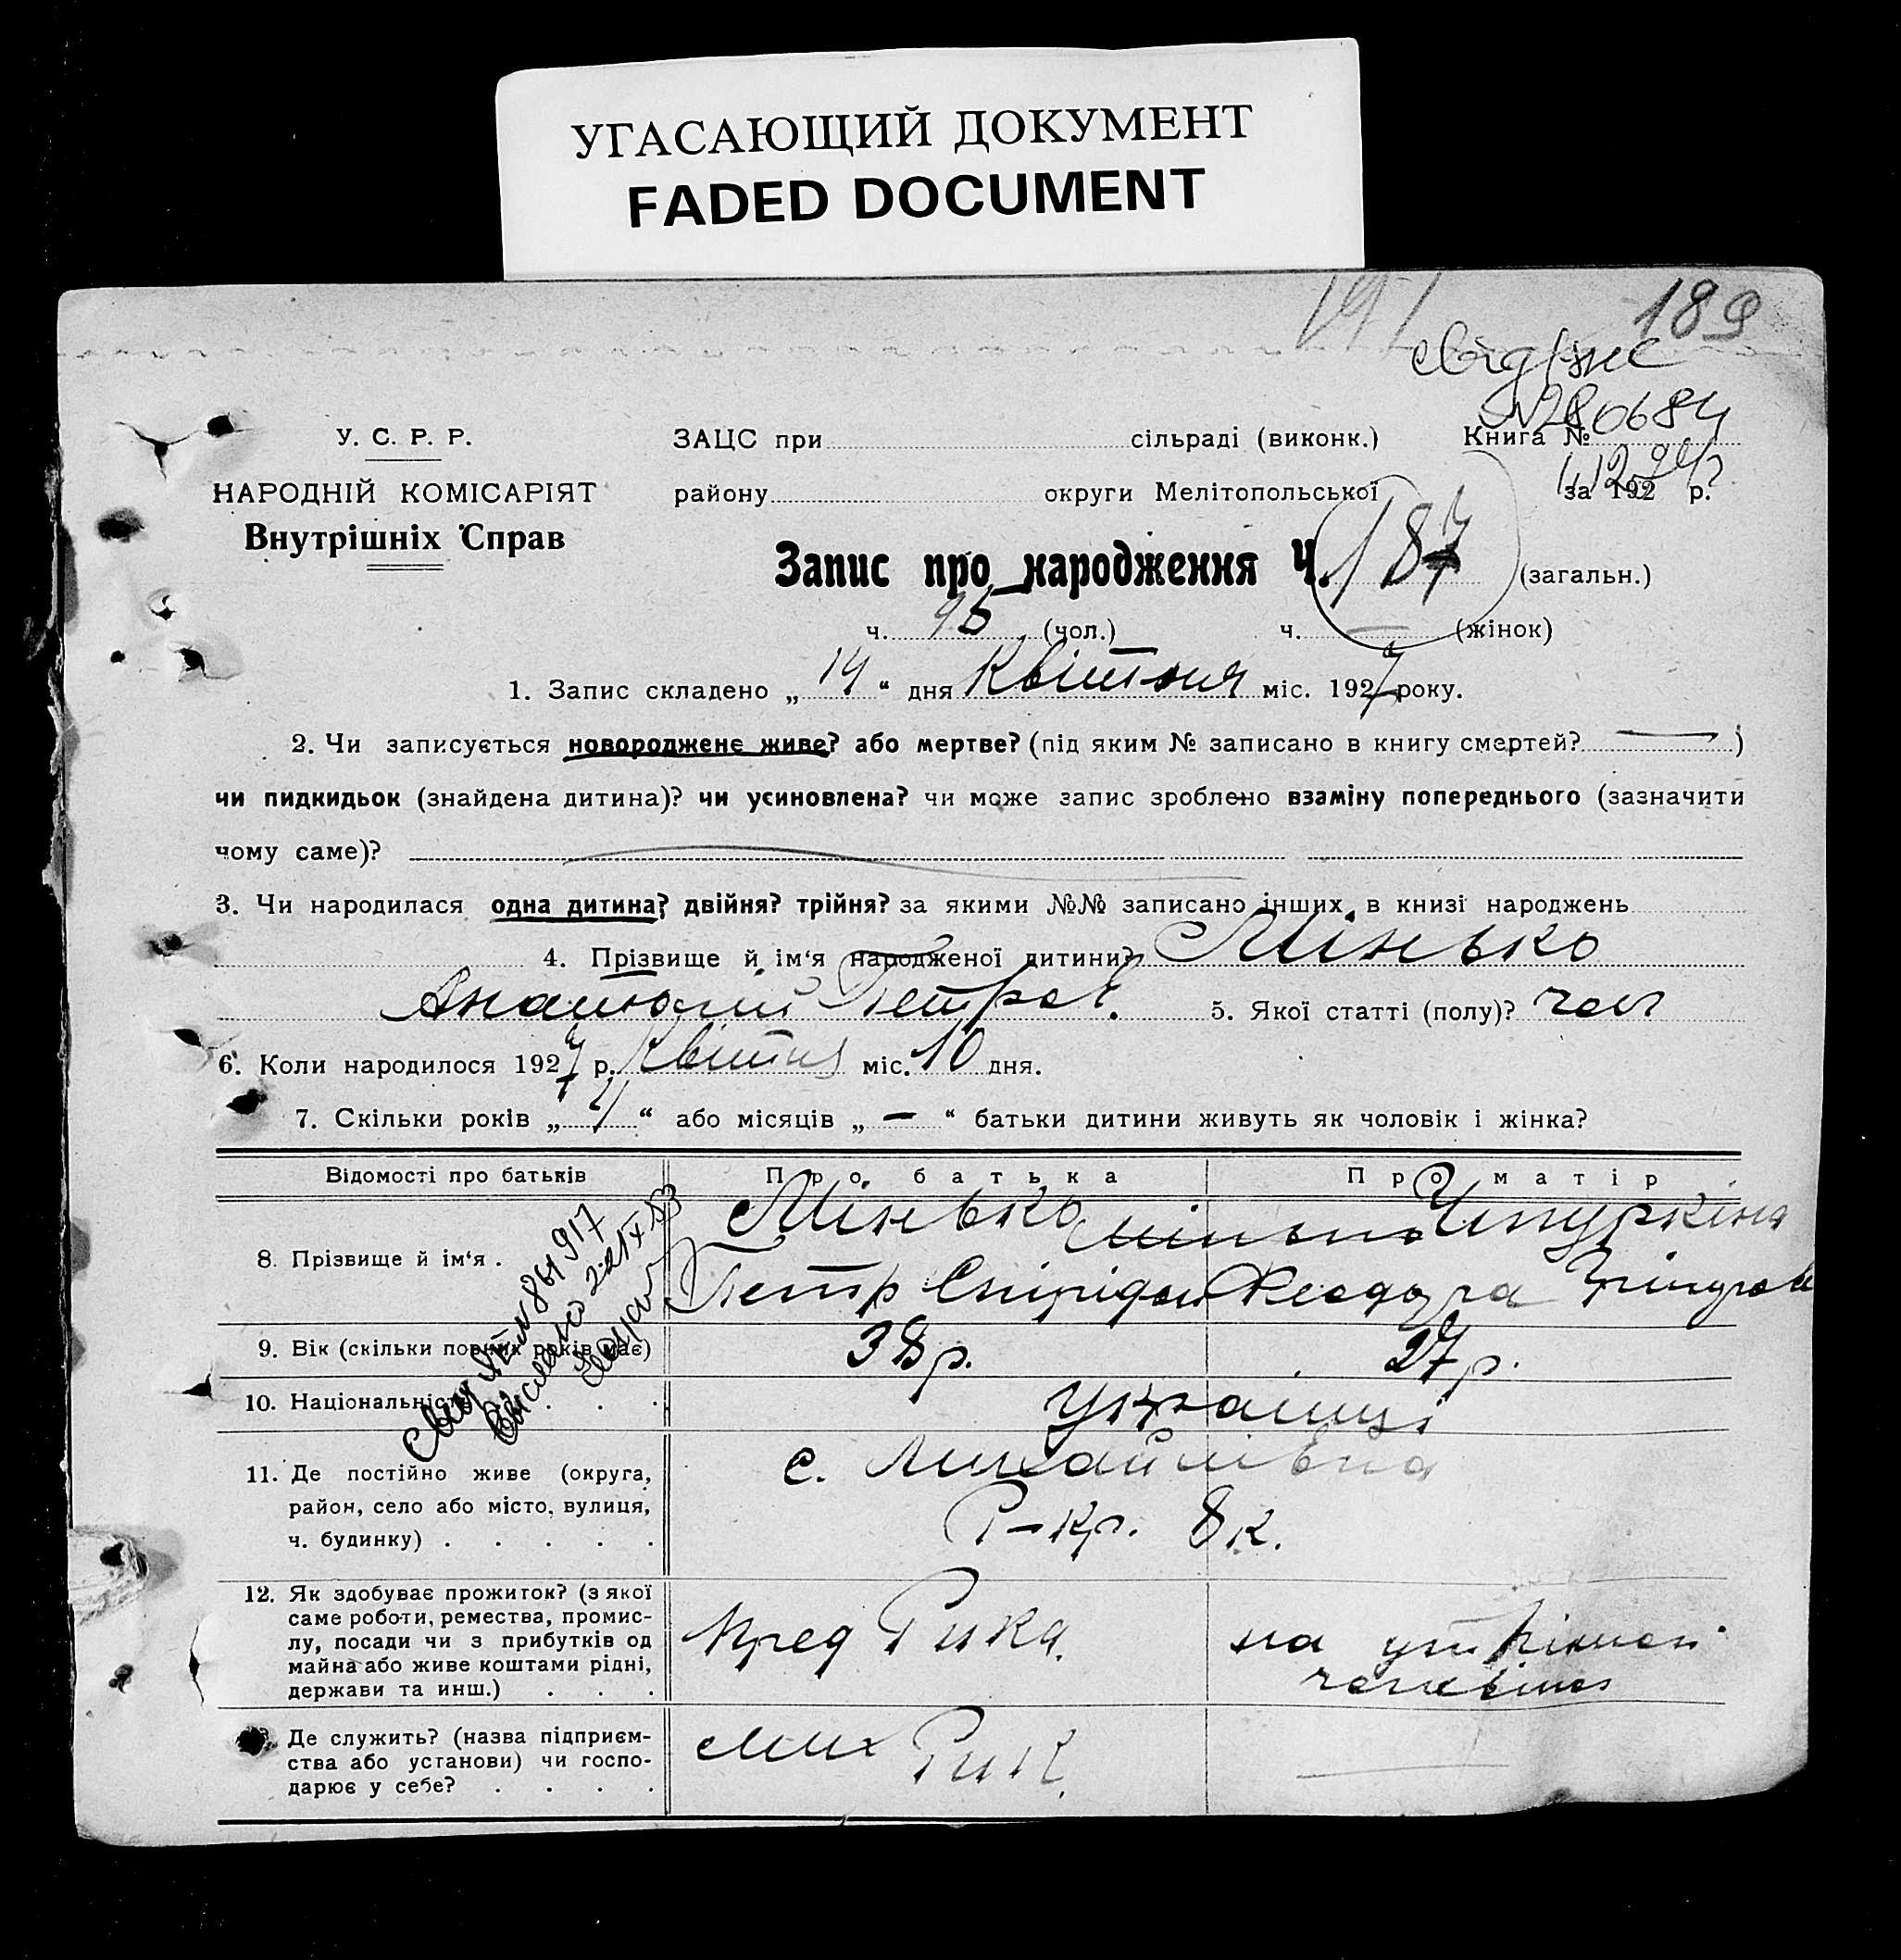 УГАСАЮЩИЙ ДОКУМЕНТ
FADED DOCUMENT
189
№280684
У. С. Р. Р.
ЗАЦС при сільраді (виконк.) Книга №
НАРОДНІЙ КОМІСАРІЯТ
району округи Мелітопольської за 192 р.
Внутрішніх Справ
Запис про народження Ч. 187 (загальн.)
ч. 95 (чол.) ч. — (жінок)
1. Запис складено „14“ дня Квітня міс. 1927 року.
2. Чи записується новороджене живе? або мертве? (під яким № записано в книгу смертей? — )
чи пидкидьок (знайдена дитина)? чи усиновлена? чи може запис зроблено взаміну попереднього (зазначити
чому саме)?
3. Чи народилася одна дитина? двійня? трійня? за якими №№ записано інших в книзі народжень
4. Прізвище й ім‘я народженої дитини? Мінько
Анатолий Петров. 5. Якої статті (полу)? чол
6. Коли народилося 1927 р. Квітня міс. 10 дня.
7. Скільки років „4“ або місяців „—“ батьки дитини живуть як чоловік і жінка?
Відомості про батьків Про батька Про матір
8. Прізвище й ім‘я . Мінько
Петр Спірідон Феодора
9. Вік (скільки повних років має) 38 р. 27 р.
10. Національність . . . українці
11. Де постійно живе (округа, район, село або місто, вулиця, ч. будинку) . . . . .
с. Михайлівка
Р-кр. 8 к.
12. Як здобуває прожиток? (з якої саме роботи, ремества, промислу, посади чи з прибутків од майна або живе коштами рідні, держави та инш.) . . .
Пред Рика. на утріман.
чоловіка
Де служить? (назва підприємства або установи) чи господарює у себе? . . . .
Мих Рик.